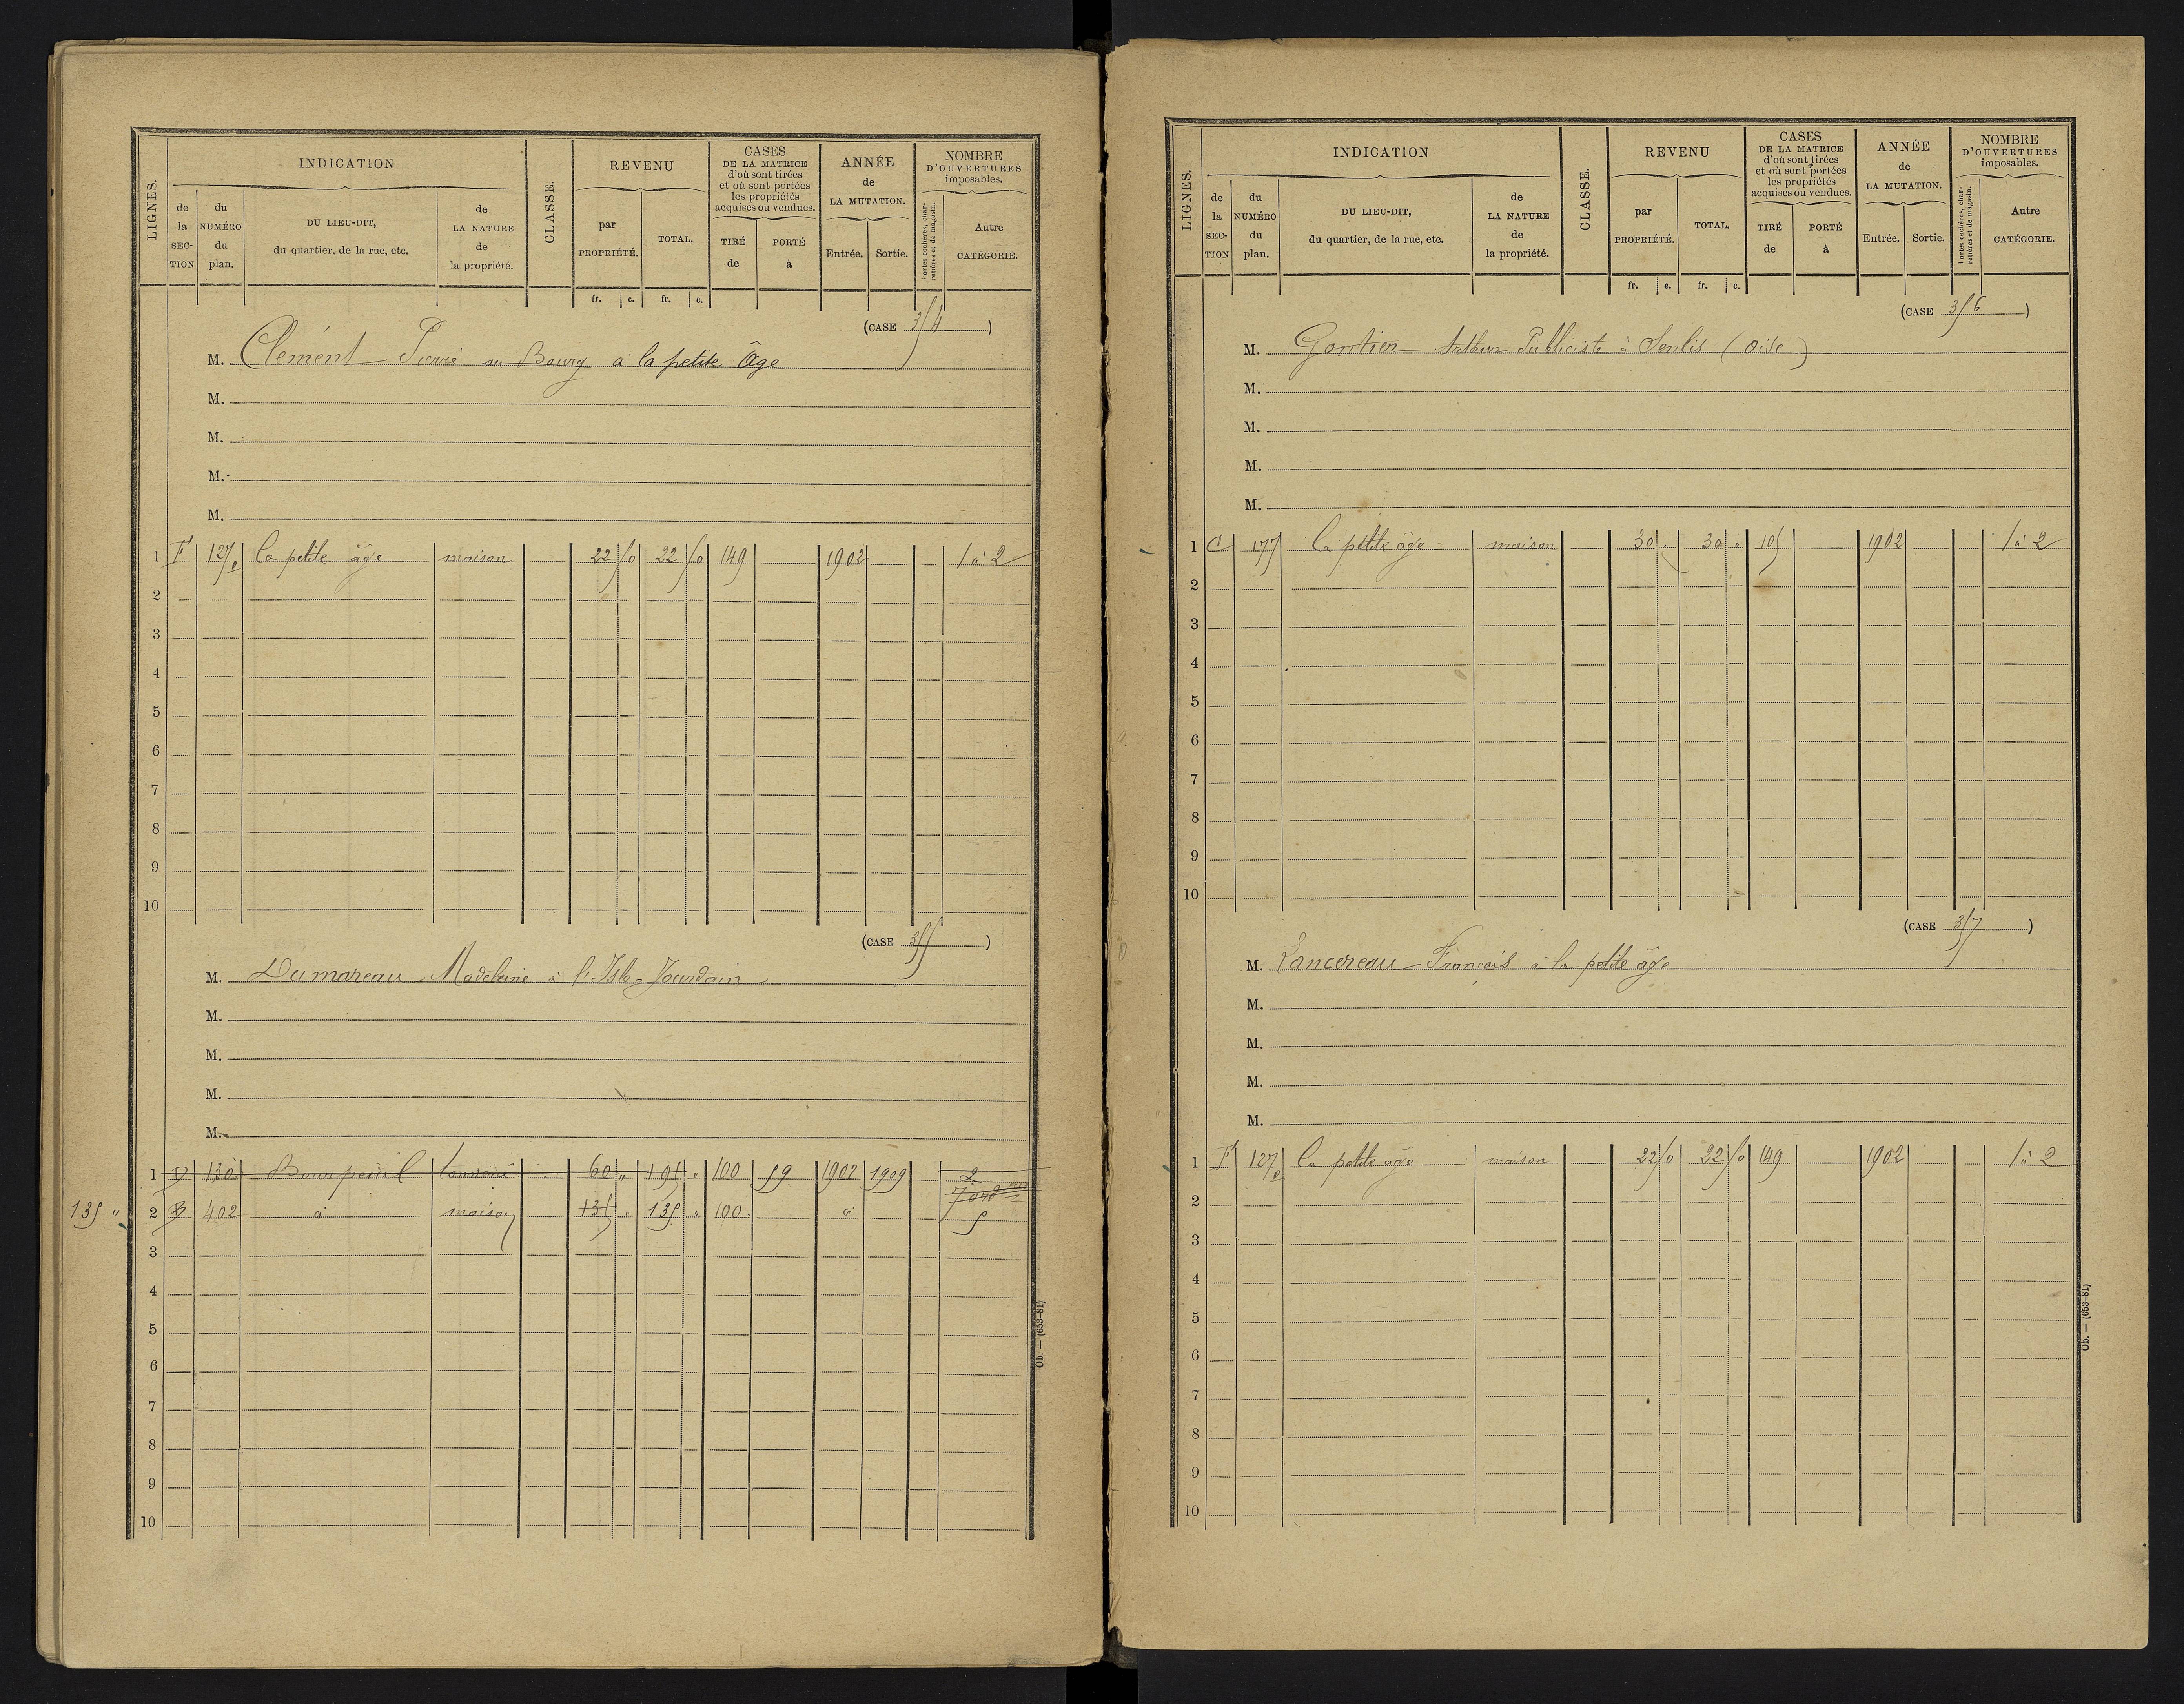 LIGNES.
INDICATION
de la SECTION
du NUMÉRO du plan.
DU LIEU-DIT, du quartier, de la rue, etc.
de LA NATURE de la propriété.
CLASSE.
REVENU
par PROPRIÉTÉ.
TOTAL.
fr. c. fr. c.
CASES DE LA MATRICE d'où sont tirées et où sont portées les propriétés acquises ou vendues.
TIRÉ de
PORTÉ à
ANNÉE de LA MUTATION.
Entrée. Sortie.
NOMBRE D'OUVERTURES imposables.
Portes cochères, charretières et de magasin.
Autre CATÉGORIE.
(CASE 354 )
M. Clément Pierre au Bourg à la petite Âge
M.
M.
M.
M.
1 F 127p la petite âge maison 22 50 22 50 149 1902 1 à 2
2
3
4
5
6
7
8
9
10
(CASE 355 )
M. Dumareau Madeleine à l'Isle-Jourdain
M.
M.
M.
M.
1 D 130 60 " 195 " 100 59 1902 1909 2
7 ord
135 " 2 B 402 d maison 135 " 135 " 100 d 5
3
4
5
6
7
8
9
10
Ob. — (653-81)
LIGNES.
INDICATION
de la SECTION
du NUMÉRO du plan.
DU LIEU-DIT, du quartier, de la rue, etc.
de LA NATURE de la propriété.
CLASSE.
REVENU
par PROPRIÉTÉ.
TOTAL.
fr. c. fr. c.
CASES DE LA MATRICE d'où sont tirées et où sont portées les propriétés acquises ou vendues.
TIRÉ de
PORTÉ à
ANNÉE de LA MUTATION.
Entrée. Sortie.
NOMBRE D'OUVERTURES imposables.
Portes cochères, charretières et de magasin.
Autre CATÉGORIE.
(CASE 356 )
M. Gontier Arthur Publiciste à Senlis (Oise)
M.
M.
M.
M.
1 C 177 la petite âge maison 30 " 30 " 105 1902 1 à 2
2
3
4
5
6
7
8
9
10
(CASE 357 )
M. Lancereau François à la petite âge
M.
M.
M.
M.
1 F 127p la petite âge maison 22 50 22 50 149 1902 1 à 2
2
3
4
5
6
7
8
9
10
Ob. — (653-81)